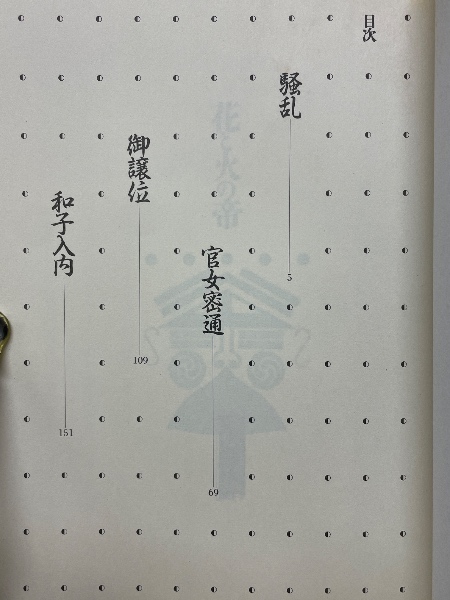 目次
騒乱 5
官女密通 69
御譲位 109
和子入内 151
花と火の帝